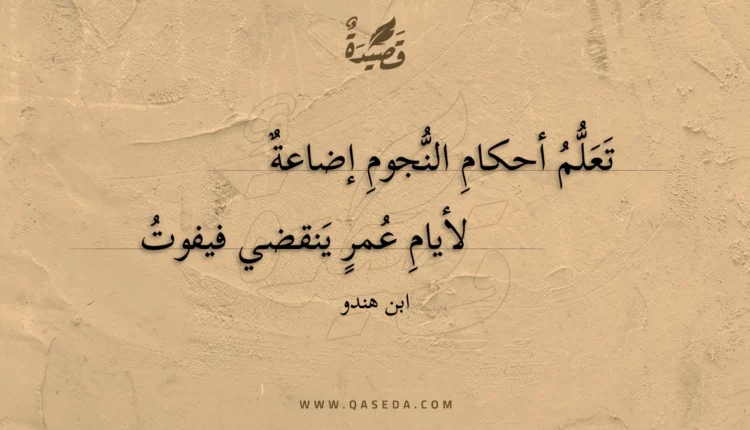 قَصِيْدَةٌ
تَعَلُّمُ أحكامِ النُّجومِ إضاعةٌ
لأيامِ عُمرٍ يَنقضي فيفوتُ
ابن هندو
WWW.QASEDA.COM